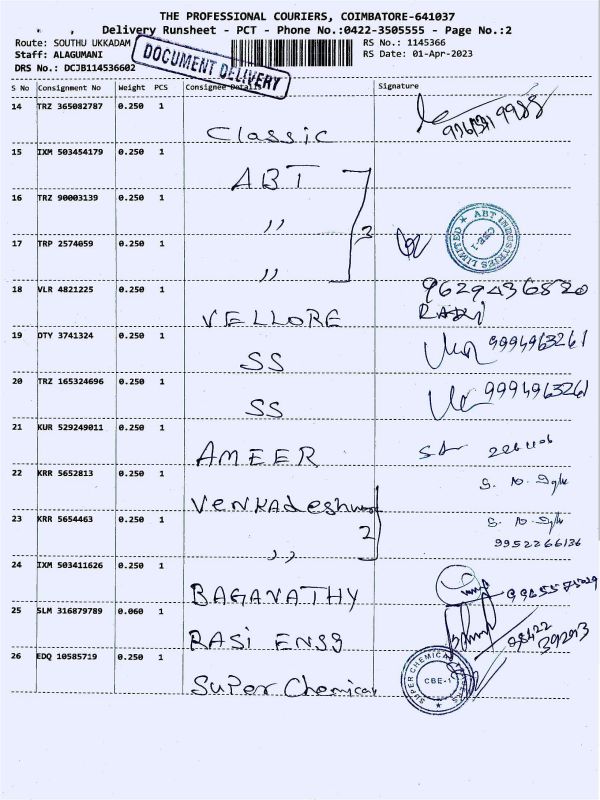 THE PROFESSIONAL COURIERS, COIMBATORE-641037
Delivery Runsheet - PCT - Phone No.:0422-3505555 - Page No.:2
Route: SOUTHU UKKADAM RS No.: 1145366
Staff: ALAGUMANI RS Date: 01-Apr-2023
DRS No.: DCJB114536602
DOCUMENT DELIVERY
S No Consignment No Weight PCS Consignee Details Signature
14 TRZ 365082787 0.250 1
Classic
15 IXM 503454179 0.250 1
ABT
16 TRZ 90003139 0.250 1
,,
3
ABT INDUSTRIES LIMITED
CBE-1
17 TRP 2574059 0.250 1
,,
18 VLR 4821225 0.250 1 9629436820
VELLORE
19 DTY 3741324 0.250 1 9994963261
SS
20 TRZ 165324696 0.250 1 9994963261
SS
21 KUR 529249011 0.250 1
AMEER
22 KRR 5652813 0.250 1
2
23 KRR 5654463 0.250 1
,, 9952266136
24 IXM 503411626 0.250 1
BAGAVATHY
25 SLM 316879789 0.060 1
RASI ENSS
26 EDQ 10585719 0.250 1
Super Chemical
SUPER CHEMICAL
CBE-1